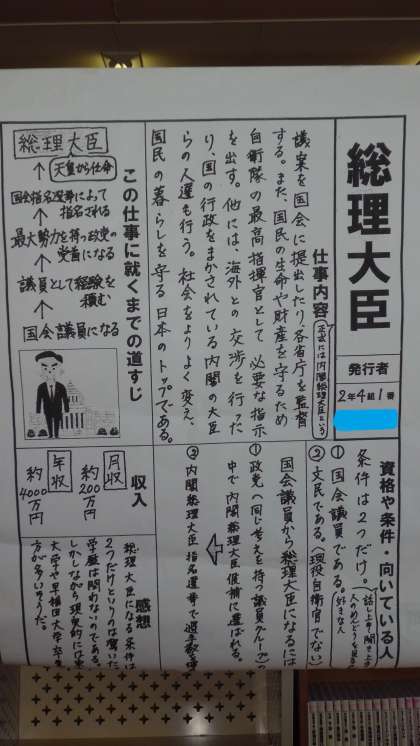 総理大臣
発行者
2年4組1番
仕事内容
(正式には内閣総理大臣という)
議案を国会に提出したり、各省庁を監督
する。また、国民の生命や財産を守るため
自衛隊の最高指揮官として必要な指示
を出す。他には、海外との交渉を行った
り、国の行政をまかされている内閣の大臣
らの人選も行う。社会をよりよく変え、
国民の暮らしを守る日本のトップである。
この仕事に就くまでの道すじ
総理大臣
↑ 天皇から任命
国会指名選挙によって
指名される
↑
最大勢力を持つ政党の
党首になる
↑
議員として経験を
積む
↑
国会議員になる
資格や条件・向いている人
条件は2つだけ。
(話し上手・聞き上手
好きな人
① 国会議員である。
② 文民である。(現役自衛官でない)
国会議員から総理大臣になるには
① 政党(同じ考えを持つ議員グループ)の
中で内閣総理大臣候補に選ばれる。
② 内閣総理大臣指名選挙で過半数
収入
月収
約200万円
年収
約4000万円
感想
総理大臣になる条件は
2つだけというのは驚いた
学歴は問わないのである。
しかしながら現実的には
大学や早稲田大学卒
方が多いそうだ。